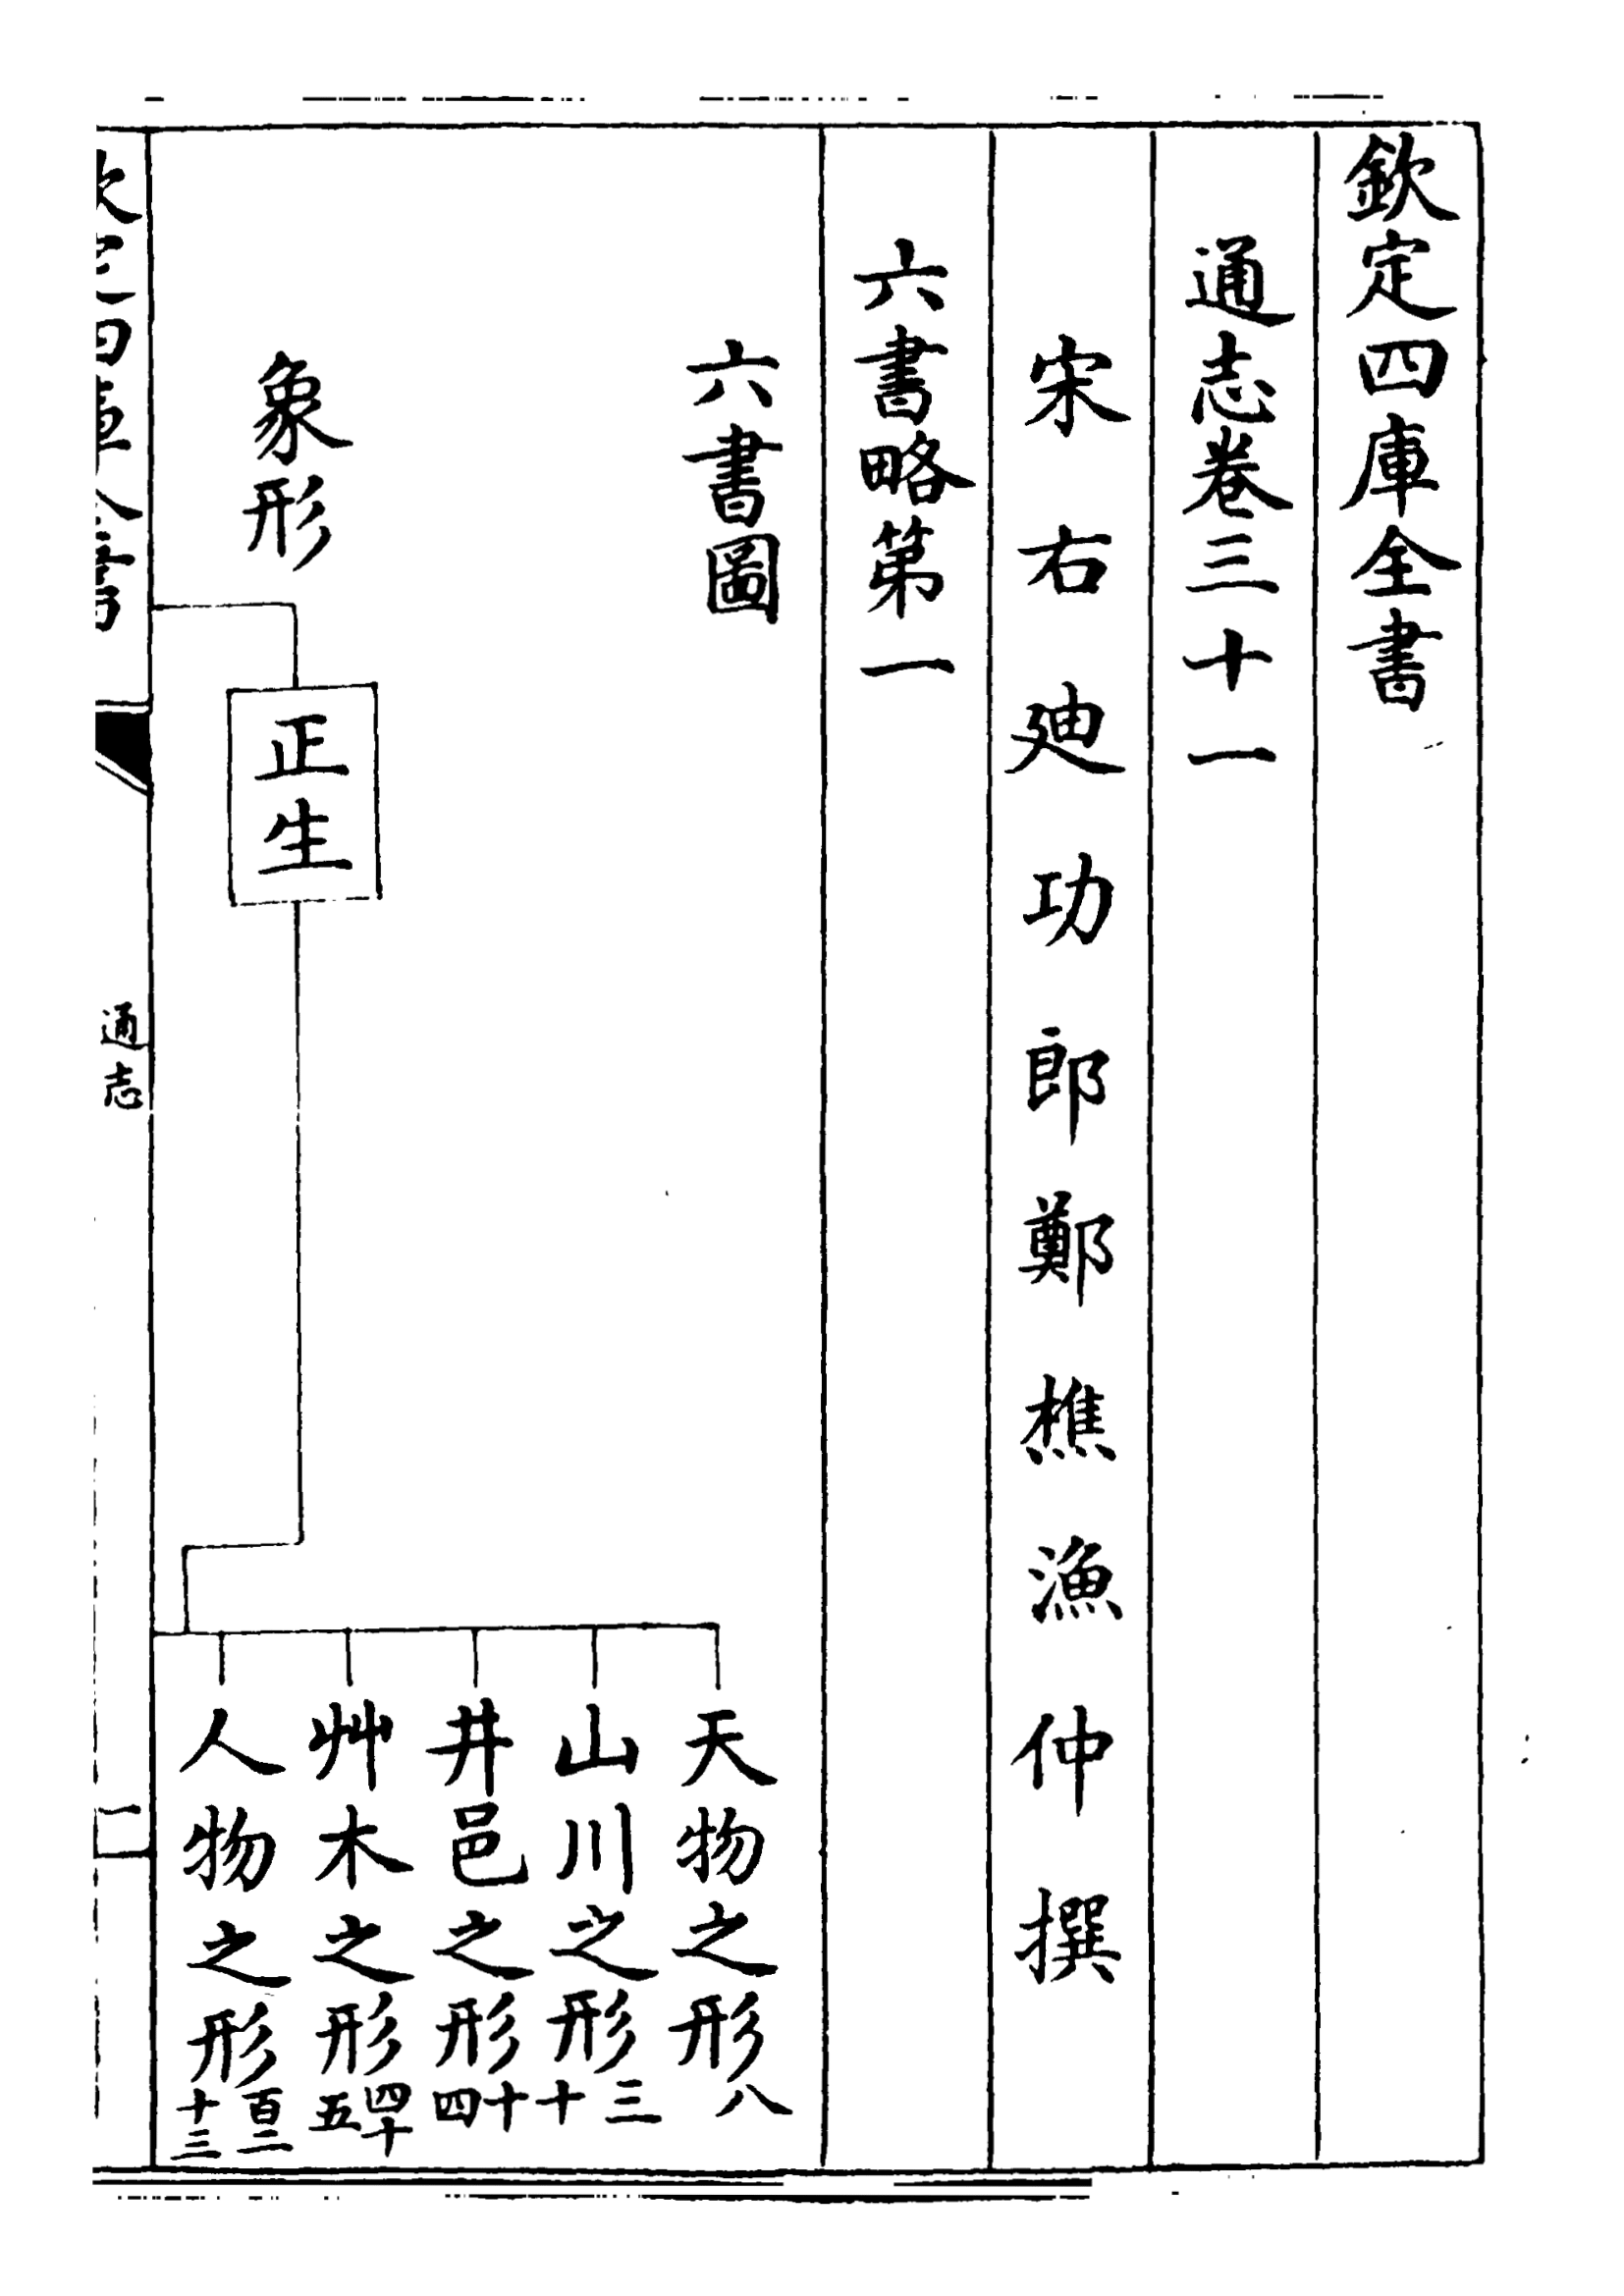 欽定四庫全書
通志卷三十一
宋右廸功郎鄭樵漁仲撰
六書略第一
六書圖
象形
正生
天物之形八
山川之形三十
井邑之形十四
艸木之形四十五
人物之形百二十三
欽定四庫全書
通志
一